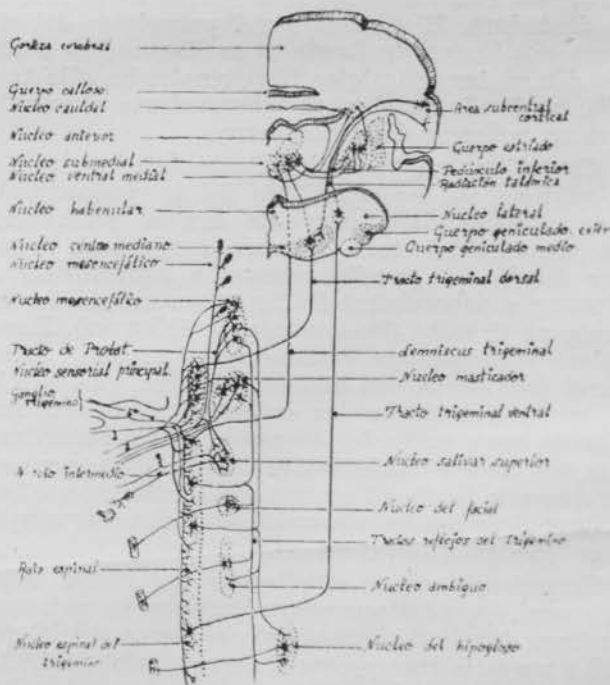 Corteza cerebral
Cuerpo calloso
Núcleo caudal
Núcleo anterior
Núcleo submedial
Núcleo ventral medial
Núcleo habenular
Núcleo centro mediano
Núcleo mesencefático
Nucleo mesencefático
Tracto de Probst
Núcleo sensorial principal
Ganglio
trigemino
intermedio
Raíz espinal
Núcleo espinal del
trigemino
Area subcentral
cortical
Cuerpo estriado
Pedúnculo inferior
Radiación talámica
Nucleo lateral
Cuerpo geniculado
Cuerpo geniculado medio
Tracto trigeminal dorsal
Lemniscus trigeminal
Nucleo masticador
Tracto trigeminal ventral
Nucleo salivar superior
Nucleo del facial
Tractos reflejos del trigemino
Nucleo ambiguo
Nucleo del hipogloso